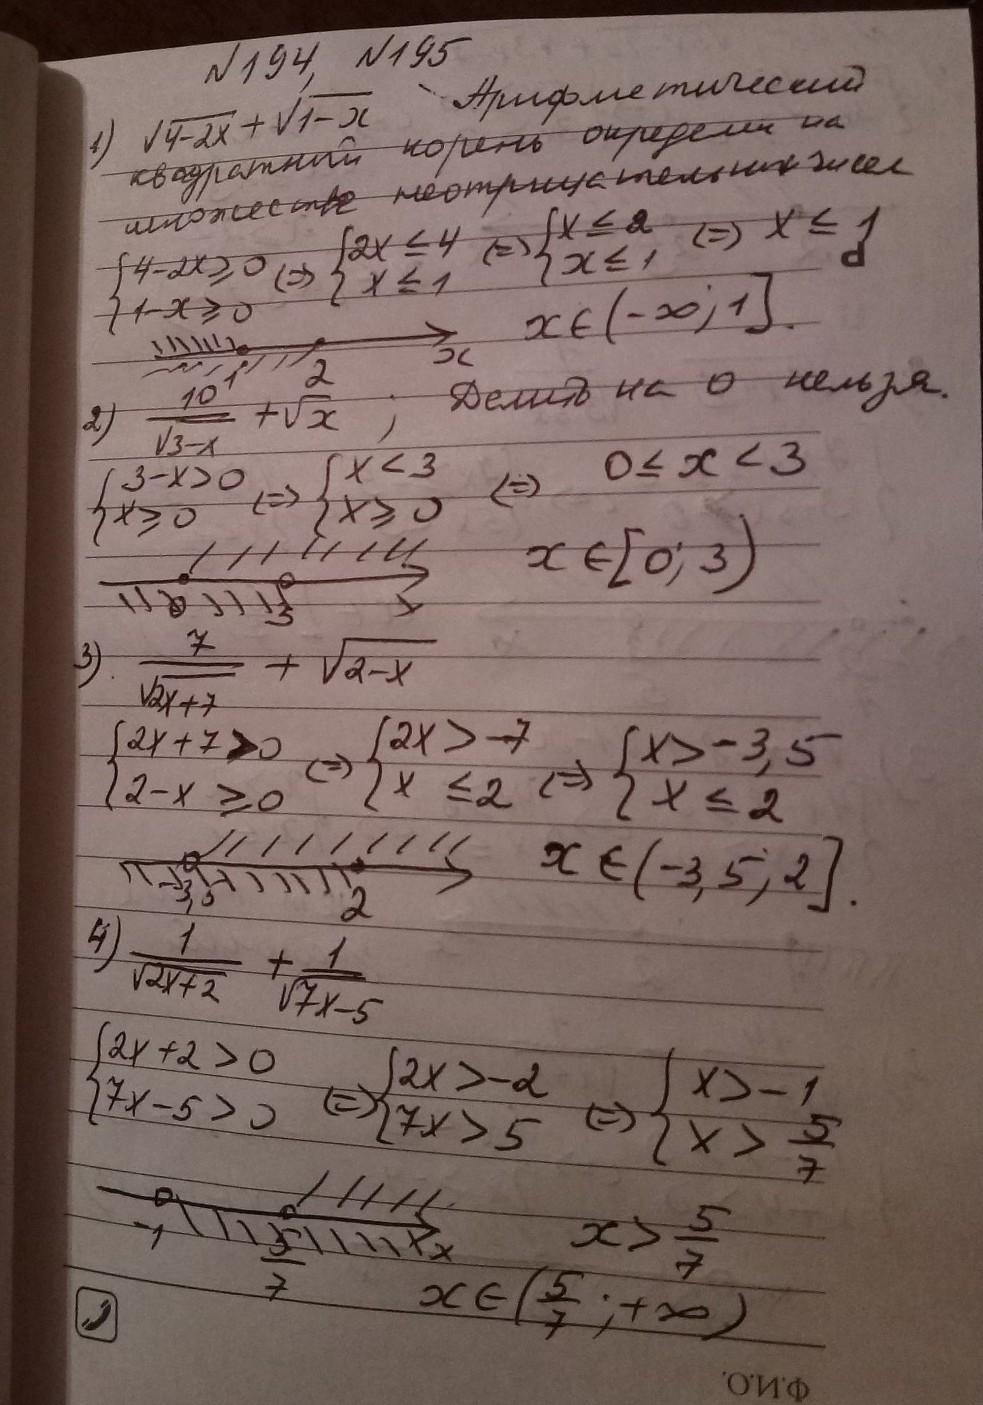 №194, №195
1) √4-2x + √1-x Арифметический
квадратный корень определен на
множестве неотрицательных чисел
{4-2x≥0 (=) {2x≤4 (=) {x≤2 (=) x≤1
{1-x≥0 {x≤1 {x≤1
x∈(-∞; 1].
1 2 x
2) 10/√3-x + √x ; Делить на 0 нельзя.
{3-x>0 (=) {x<3 (=) 0≤x<3
{x≥0 {x≥0
x∈[0; 3)
0 3 x
3) 7/√2x+7 + √2-x
{2x+7>0 (=) {2x>-7 (=) {x>-3,5
{2-x≥0 {x≤2 {x≤2
x∈(-3,5; 2].
-3,5 2
4) 1/√2x+2 + 1/√7x-5
{2x+2>0 (=) {2x>-2 (=) {x>-1
{7x-5>0 {7x>5 {x>5/7
-1 5/7 x
x>5/7
x∈(5/7; +∞)
Ф.И.О.